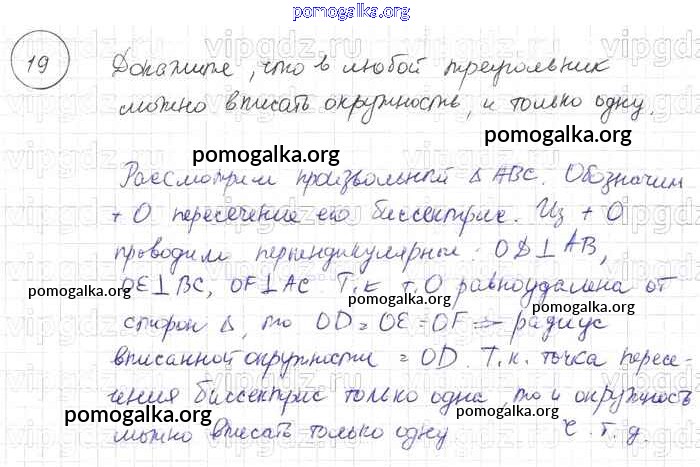 pomogalka.org
19
Докажите, что в любой треугольник
можно вписать окружность, и только одну.
pomogalka.org
pomogalka.org
Рассмотрим произвольный Δ ABC. Обозначим
т O пересечение его биссектрис. Из т O
проводим перпендикуляры: OD⊥AB,
OE⊥BC, OF⊥AC Т.к т.O равноудалена от
pomogalka.org
pomogalka.org
сторон Δ, то OD=OE=OF => радиус
вписанной окружности = OD. Т.к. точка пересе-
чения биссектрис только одна, то и окружность
pomogalka.org
pomogalka.org
можно вписать только одну ч. т. д.